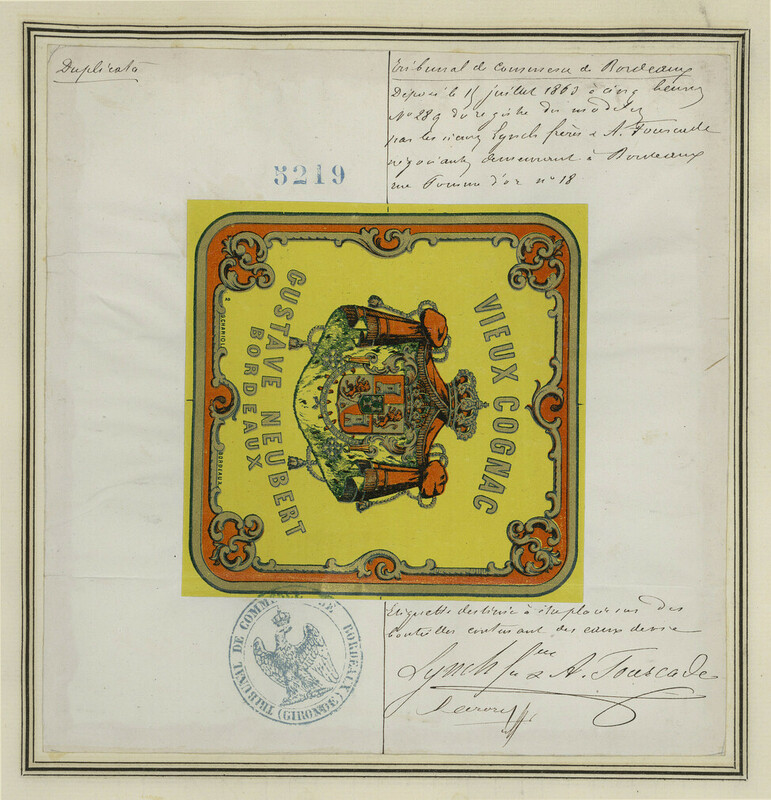 Duplicata
Tribunal de Commerce de Bordeaux
Déposé le 15 juillet 1863 à cinq heures
N° 289 du registre des modèles
par les sieurs Lynch frères & A. Fourcade
négociants demeurant à Bordeaux
rue Pomme d'or n° 18
5219
VIEUX COGNAC
GUSTAVE NEUBERT
BORDEAUX
BORDEAUX
Etiquette destinée à être placée sur des
bouteilles contenant des eaux de vie
Lynch fres & A. Fourcade
TRIBUNAL DE COMMERCE DE BORDEAUX
(GIRONDE)